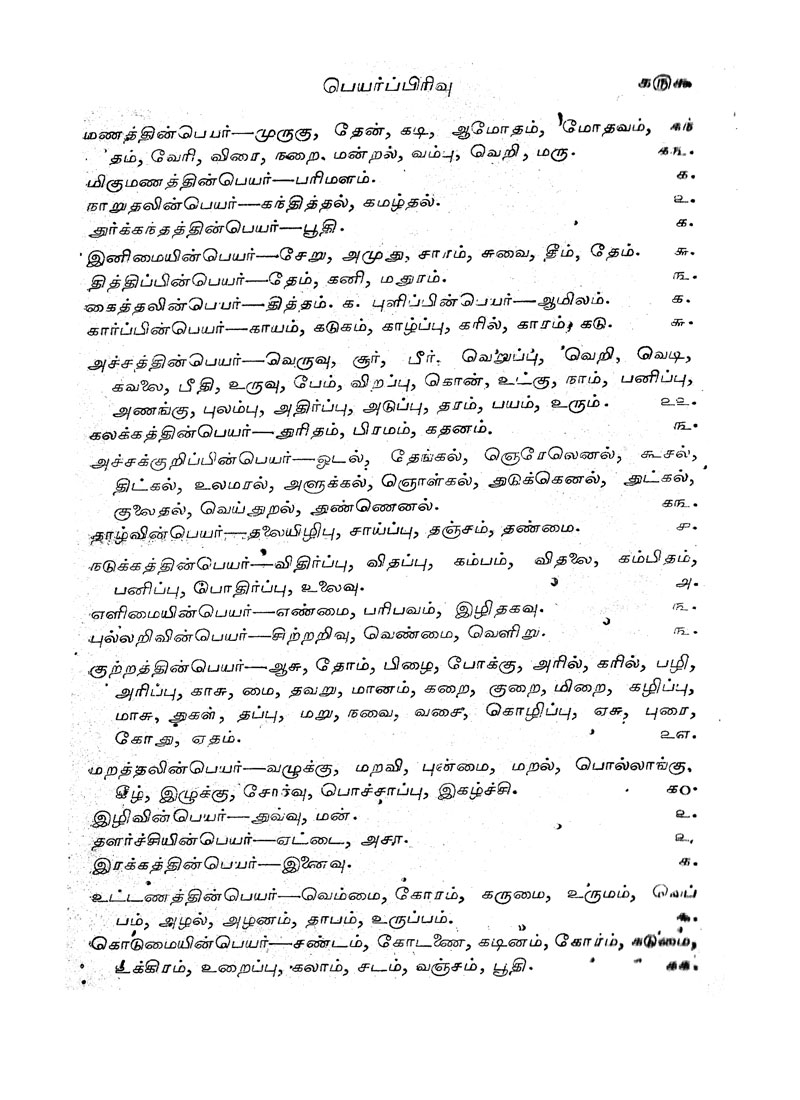 பெயர்ப்பிரிவு கருகூ
மணத்தின்பெயர்—முருகு, தேன், கடி, ஆமோதம், மோதவம், கந்
தம், வேரி, விரை, நறை, மன்றல், வம்பு, வெறி, மரு. கங.
மிகுமணத்தின்பெயர்—பரிமளம். க.
நாறுதலின்பெயர்—கந்தித்தல், கமழ்தல். உ.
துர்க்கந்தத்தின்பெயர்—பூதி. க.
இனிமையின்பெயர்—சேறு, அமுது, சாரம், சுவை, தீம், தேம். சு.
தித்திப்பின்பெயர்—தேம், கனி, மதுரம். ங.
கைத்தலின்பெயர்—தித்தம். க. புளிப்பின்பெயர்—ஆமிலம். க.
கார்ப்பின்பெயர்—காயம், கடுகம், காழ்ப்பு, கரில், காரம், கடு. சு.
அச்சத்தின்பெயர்—வெருவு, சூர், பீர், வெறுப்பு, வெறி, வெடி,
கவலை, பீதி, உருவு, பேம், விறப்பு, கொன், உட்கு, நாம், பனிப்பு,
அணங்கு, புலம்பு, அதிர்ப்பு, அடுப்பு, தரம், பயம், உரும். உஉ.
கலக்கத்தின்பெயர்—துரிதம், பிரமம், கதனம். ங.
அச்சக்குறிப்பின்பெயர்—ஓடல், தேங்கல், ஞெரேலெனல், கூசல்,
திட்கல், உலமரல், அளுக்கல், ஞொள்கல், துடுக்கெனல், துட்கல்,
குலைதல், வெய்துறல், துண்ணெனல். கங.
தாழ்வின்பெயர்—தலையிழிபு, சாய்ப்பு, தஞ்சம், தண்மை. ச.
நடுக்கத்தின்பெயர்—விதிர்ப்பு, விதப்பு, கம்பம், விதலை, கம்பிதம்,
பனிப்பு, பொதிர்ப்பு, உலைவு. அ.
எளிமையின்பெயர்—எண்மை, பரிபவம், இழிதகவு. ங.
புல்லறிவின்பெயர்—சிற்றறிவு, வெண்மை, வெளிறு. ங.
குற்றத்தின்பெயர்—ஆசு, தோம், பிழை, போக்கு, அரில், கரில், பழி,
அரிப்பு, காசு, மை, தவறு, மானம், கறை, குறை, மிறை, கழிப்பு,
மாசு, துகள், தப்பு, மறு, நவை, வசை, கொழிப்பு, ஏசு, புரை,
கோது, ஏதம். உஎ.
மறத்தலின்பெயர்—வழுக்கு, மறவி, புன்மை, மறல், பொல்லாங்கு,
கீழ், இழுக்கு, சோர்வு, பொச்சாப்பு, இகழ்ச்சி. க௦.
இழிவின்பெயர்—துவ்வு, மன். உ.
தளர்ச்சியின்பெயர்—எட்டை, அசா. உ.
இரக்கத்தின்பெயர்—இனைவு. க.
உட்டணத்தின்பெயர்—வெம்மை, கோரம், கருமை, உருமம், வெப்
பம், அழல், அழனம், தாபம், உருப்பம்.
கொடுமையின்பெயர்—சண்டம், கோடணை, கடினம், கோரம், கடுமை,
உக்கிரம், உறைப்பு, கலாம், சடம், வஞ்சம், பூதி. கக.